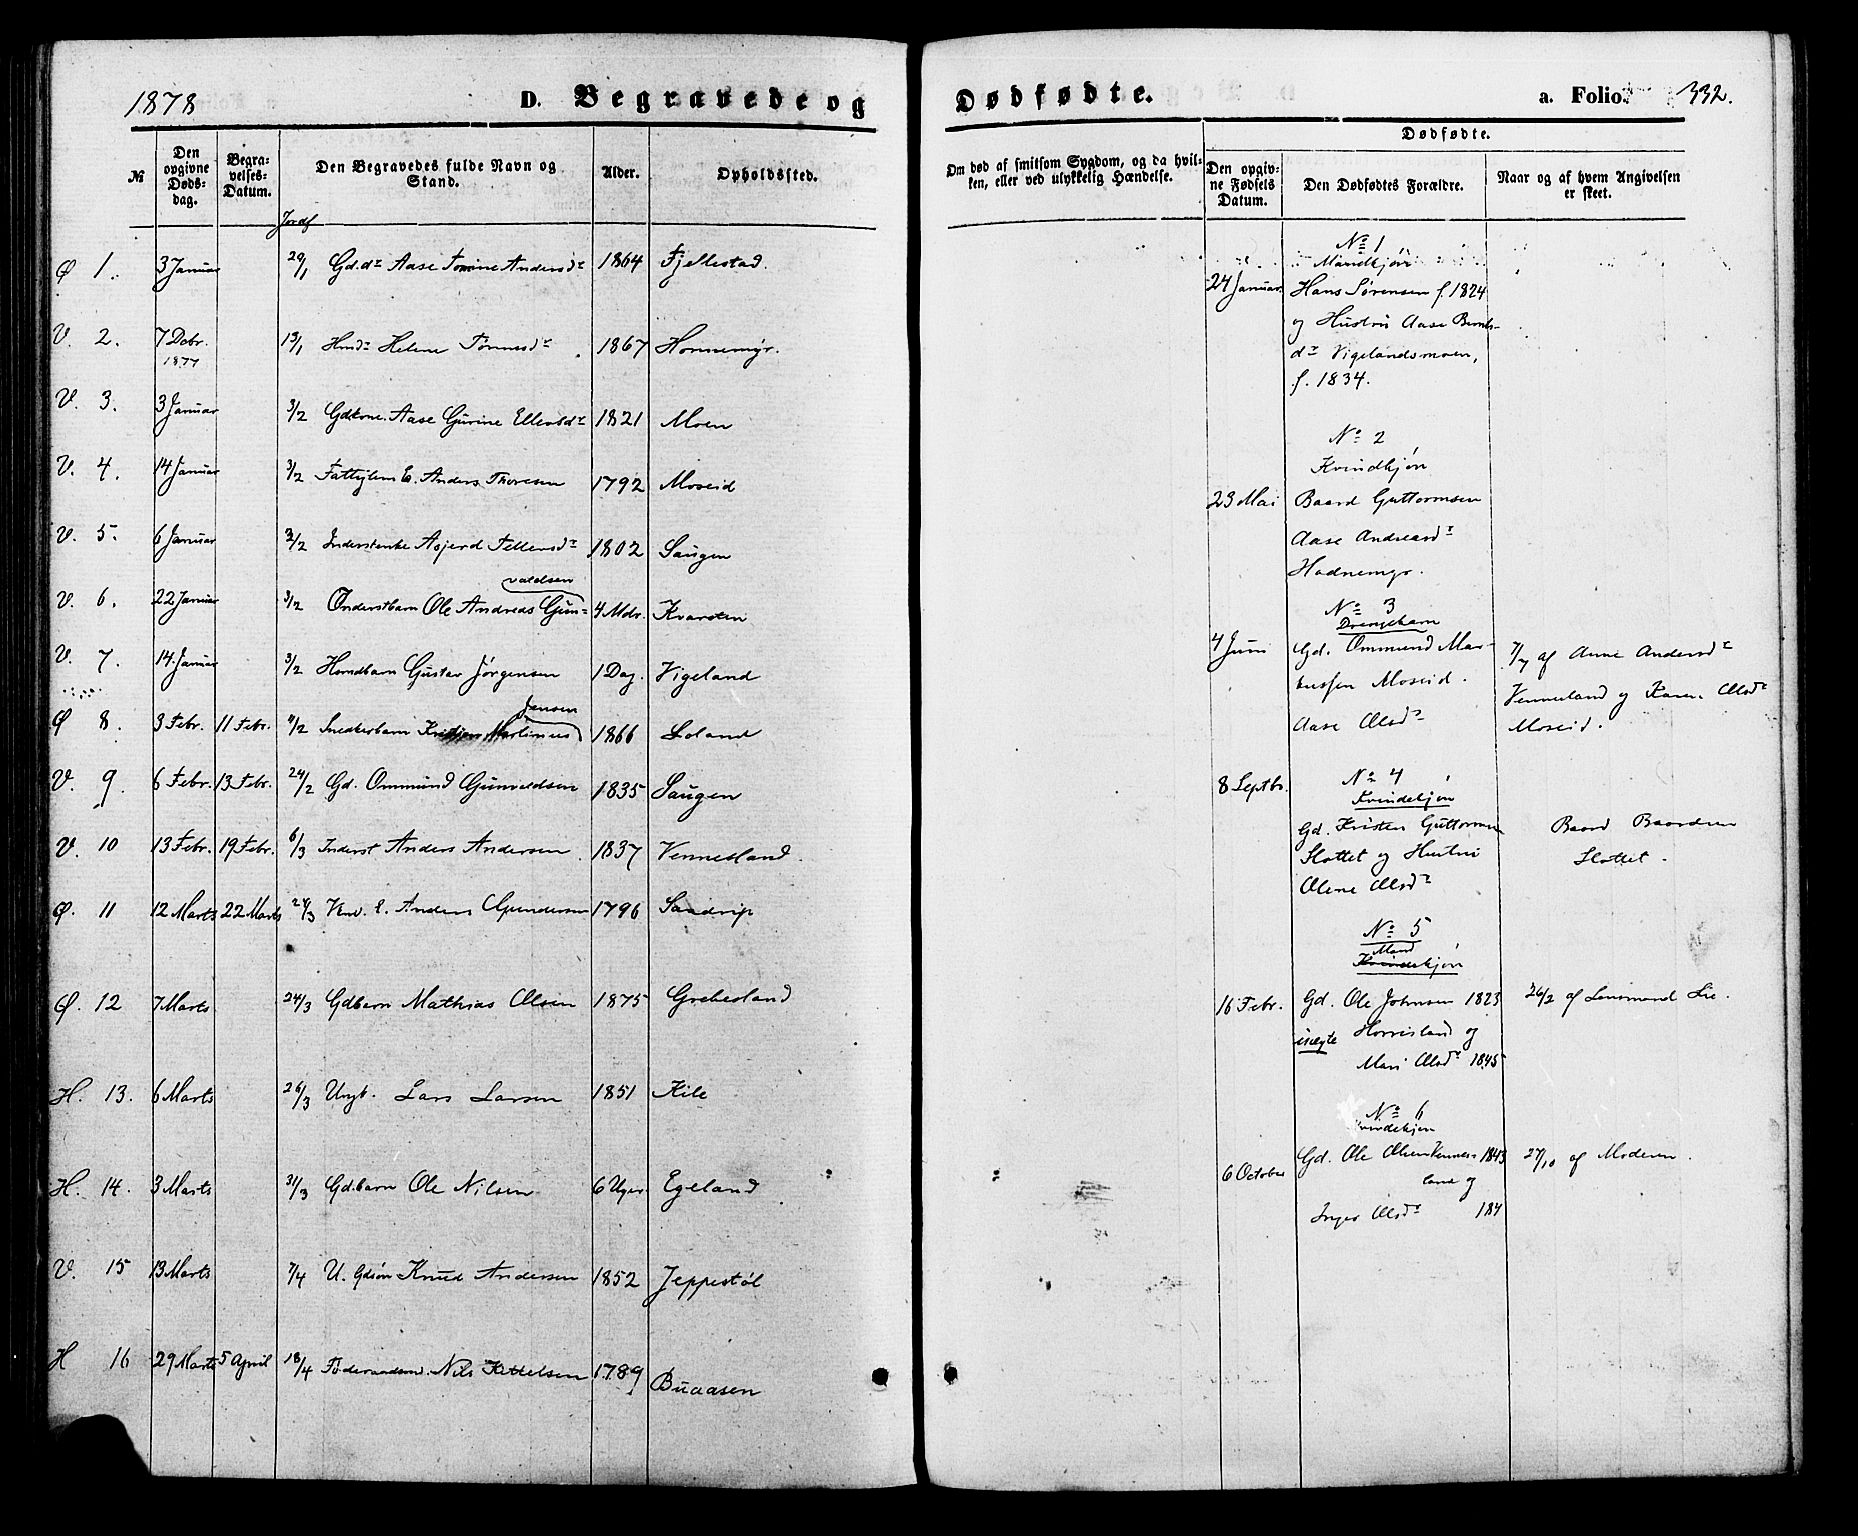 1878
D. Begravede og
Dødfødte.
a. Folio. 332.
№
Den opgivne Døds-dag.
Begra-velses-Datum.
Den Begravedes fulde Navn og Stand.
Alder.
Opholdssted.
Jordf
Ø 1. 3 Januar 29/1 Gd.dr Aase Tomine Andersdr 1864 Fjellestad.
V. 2. 7 Debr. 1877 13/1 Hmdr Helene Tønnesdr 1867 Honnemyr.
V. 3. 3 Januar 3/2 Gdkone. Aase Gurine Ellevsdr 1821 Moen
V. 4. 14 Januar 3/2 Fattiglem E. Anders Thoresen 1792 Moseid
V. 5. 6 Januar 3/2 Inderstenke Asjerd Tellevsdr 1802 Saugen
V. 6. 22 Januar 3/2 Inderstbarn Ole Andreas Gun-valdsen 4 Mdr. Kvarsten
V. 7. 14 Januar 3/2 Hmdbarn Gustav Jørgensen 1 Dag. Vigeland
Ø 8. 3 Febr. 11 Febr. 11/2 Snedkerbarn Kristjan Martinius Jensen 1866 Loland
V. 9. 6 Febr. 13 Febr. 24/2 Gd. Ommund Gunvaldsen 1835 Saugen
V. 10 13 Febr. 19 Febr. 6/3 Inderst Anders Andersen 1837 Vennesland.
Ø. 11 12 Marts 22 Marts 24/3 Anders Gundersen 1796 Saadvig
Ø. 12 7 Marts 24/3 Gdbarn Mathias Olsen 1875 Grebesland
H. 13. 6 Marts 26/3 Ungk. Lars Larsen 1851 Kile
H. 14. 3 Marts 31/3 Gd.barn Ole Nilsen 6 Uger Egeland
V. 15 13 Marts 7/4 U. Gdsøn Knud Andersen 1852 Jeppestøl
H 16 29 Marts 5 April 18/4 Føderaadsmd. Nils Kittelsen 1789 Buaasen
Om død af smitsom Sygdom, og da hvil-ken, eller ved ulykkelig Hændelse.
Dødfødte.
Den opgiv-ne Fødsels Datum.
Den Dødfødtes Forældre.
Naar og af hvem Angivelsen er skeet.
No 1
Mandkjøn
24 Januar. Hans Sørensen f. 1824
og Hustru Aase Bernts-
dr Vigelandsmoen,
f. 1834.
No 2
Kvindkjøn
23 Mai Baard Guttormsen
Aase Andreasdr
Hodnemyr.
No 3
Drengebarn
4 Juni Gd. Ommund Mar- 7/7 af Anne Andersdr
kussen Moseid. Vennesland og Karen Olsdr
Aase Olsdr Moseid.
8 Septbr. No 4
Kvindekjøn
Gd. Kristen Guttormsen Baard Baardsen
Slottet og Hustru Slottet.
Olene Olsdr
No 5
Mand
Kvindekjøn
16 Febr. Gd. Ole Johnsen 1823 26/2 af Lensmand Lie.
uægte Homisland og
Mari Olsdr 1845
No 6
Kvindekjøn
6 October Gd. Ole Olsen Vennes- 1843 27/10 af Moderen.
land og
Inger Olsdr 184